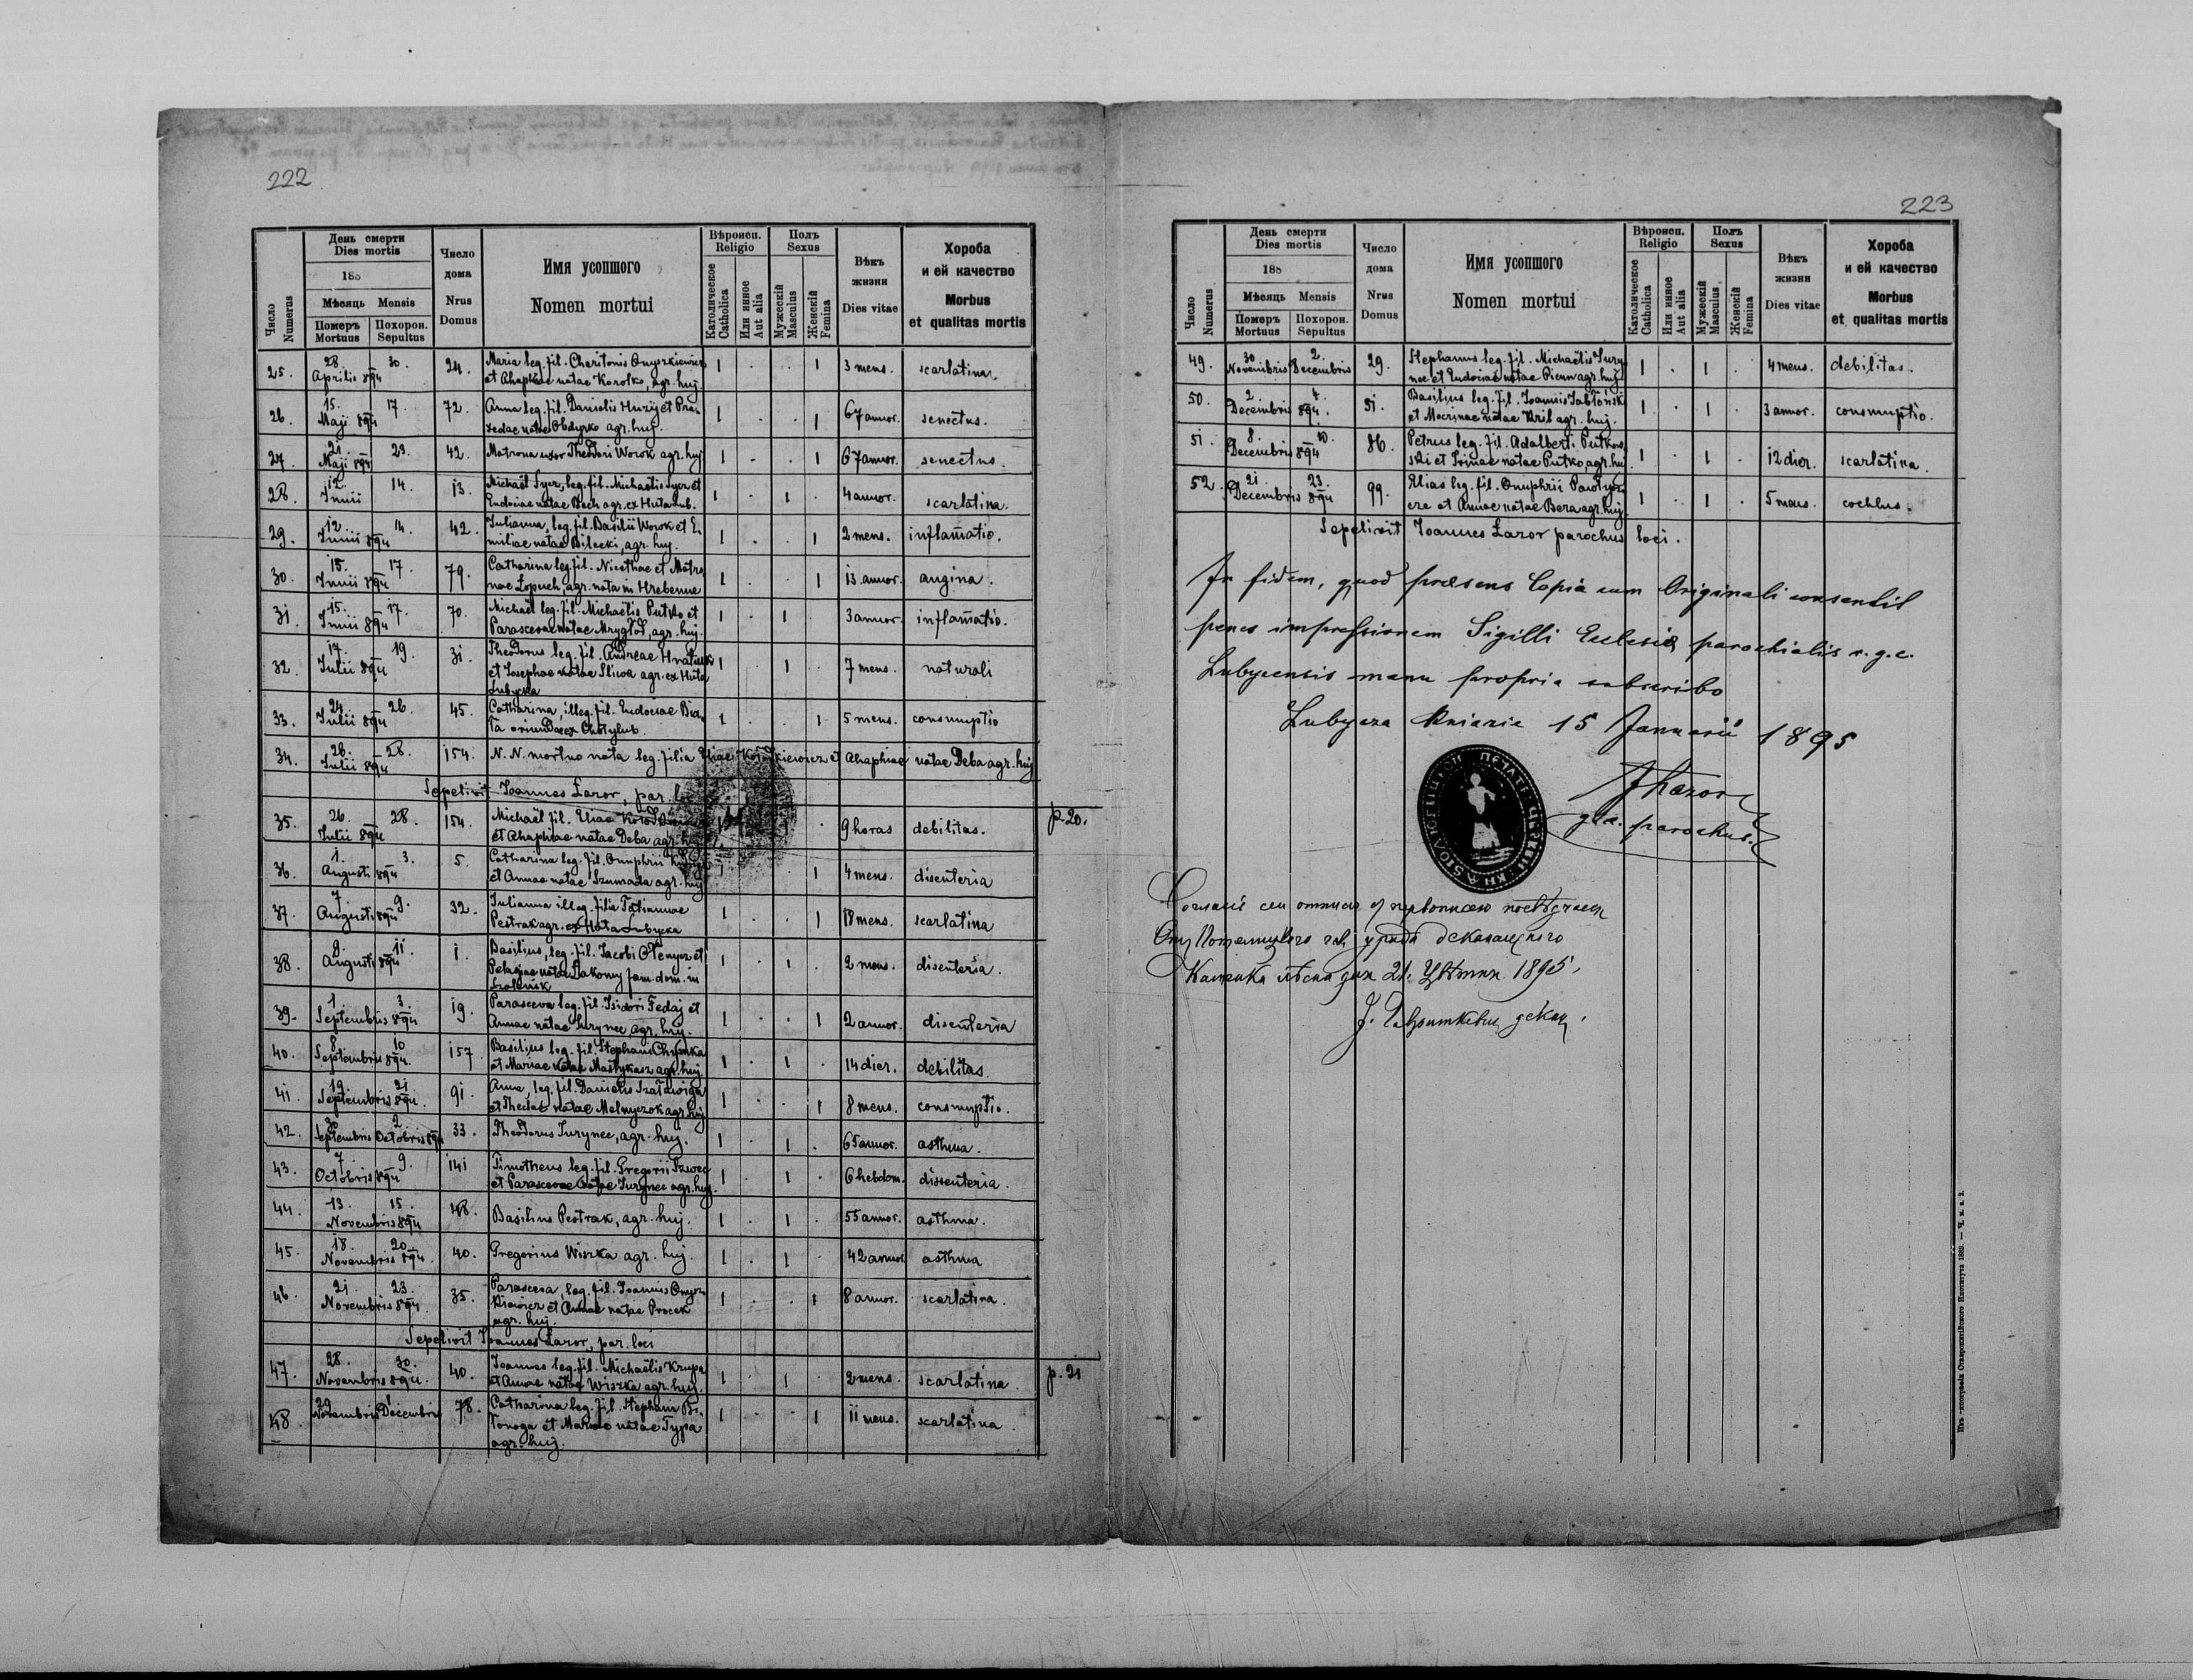 222
День смерти
Dies mortis
188
Мѣсяць Mensis
Померъ Mortuus
Похорон. Sepultus
Число Numerus
Число дома
Nrus Domus
Имя усопшого
Nomen mortui
Вѣроисп. Religio
Католическое Catholica
Или инное Aut alia
Полъ Sexus
Мужескій Masculus
Женскій Femina
Вѣкъ жизни
Dies vitae
Хороба и ей качество
Morbus et qualitas mortis
25. 28 Aprilis 894 30. 24. Maria leg. fil. Charitonis Onyszkiewicz
et Ahaphiae natae Korolko, agr. huj. 1 . . 1 3 mens. scarlatina.
26. 15. Maji 894 17. 72. Anna leg. fil. Danielis Huzij et Pra-
xedae natae Obdyrko agr. huj. 1 . . 1 67 annor. senectus.
27. 21. Maji 894 23. 42. Matrona uxor Theodori Worok agr. huj. 1 . . 1 67 annor. senectus.
28. 12. Junii 14. 13. Michaël Syer, leg. fil. Michaëlis Syer et
Eudociae natae Bech agr. ex Huta Lub. 1 . 1 . 4 annor. scarlatina.
29. 12. Junii 894 14. 42. Julianna, leg. fil. Basilii Worok et E-
miliae natae Bilecki, agr. huj. 1 . . 1 2 mens. inflamatio.
30. 15. Junii 894 17. 79. Catharina leg. fil. Nicethae et Matro
nae Łopuch, agr. nata in Hrebenne 1 . . 1 13 annor. angina.
31. 15. Junii 894 17. 70. Michaël leg. fil. Michaëlis Putko, et
Parascevae natae Mrygłod, agr. huj. 1 . 1 . 3 annor. inflamatio.
32. 17. Julii 894 19. 31. Theodorus leg. fil. Andreae Hnatiuk
et Josephae natae Sliwa agr. ex Huta
Lubycka 1 . 1 . 7 mens. naturali
33. 24. Julii 894 26. 45. Catharina, illeg. fil. Eudociae Bia-
ta oriunda ex Chotylub. 1 . . 1 5 mens. consumptio
34. 26. Julii 894 28. 154. N. N. mortuo nata leg. filia Eliae et Ahaphiae natae Deba agr. huj
Sepelivit Joannes Łazor, par.
35. 26. Julii 894 28. 154. Michaël fil. Eliae
et Ahaphiae natae Deba agr. huj. 9 horas debilitas. p. 20.
36. 1. Augusti 894 3. 5. Catharina leg. fil. Onuphrii
et Annae natae Szumada agr. huj 1 . . 1 4 mens. disenteria
37. 7. Augusti 894 9. 32. Julianna illeg. filia Tatiannae
Pestrak agr. ex Huta Lubycka 1 . . 1 18 mens. scarlatina
38. 9. Augusti 894 11. 1. Basilius, leg. fil. Jacobi Ołenycz et
Pelagiae natae Łakomy fam. dom. in
1 . 1 . 2 mens. disenteria.
39. 1. Septembris 894 3. 19. Parasceva leg. fil. Isidori Fedaj et
Annae natae Jurynec, agr. huj. 1 . . 1 2 annor. disenteria
40. 8 Septembris 894 10 157 Basilius leg. fil. Stephani Chymka
et Mariae natae Mastykasz agr. huj. 1 . 1 . 14 dier. debilitas.
41. 19. Septembris 894 21. 91. Anna, leg. fil. Danielis Szaławiga
et Theclae natae Melnyczok agr. huj 1 . . 1 8 mens. consumptio.
42. 30 Septembris 2. Octobris 894 33. Theodorus Jurynec, agr. huj. 1 . 1 . 65 annor. asthma.
43. 7. Octobris 894 9. 141 Timotheus leg. fil. Gregorii Szwec
et Parascevae natae Jurynec agr. huj. 1 . 1 . 6 hebdom. dissenteria.
44. 13. Novembris 894 15. 48. Basilius Pestrak, agr. huj. 1 . 1 . 55 annor. asthma.
45. 18. Novembris 894. 20. 40. Gregorius Wiszka agr. huj. 1 . 1 . 42 annor. asthma
46. 21. Novembris 894. 23. 35. Parasceva, leg. fil. Joannis Onysz-
kiewicz et Annae natae Procek
agr. huj. 1 . . 1 8 annor. scarlatina.
Sepelivit Joannes Łazor, par. loci
47. 28. Novembris 894. 30. 40. Joannes leg. fil. Michaëlis Krupa
et Annae natae Wiszka agr. huj. 1 . 1 . 2 mens. scarlatina. p. 21
48. 29 Novembris 1 Decembris 78. Catharina leg. fil. Stephani Bi-
łonoga et Mariae natae Typa
agr. huj. 1 . . 1 11 mens. scarlatina.
223
День смерти
Dies mortis
188
Мѣсяць Mensis
Померъ Mortuus
Похорон. Sepultus
Число Numerus
Число дома
Nrus Domus
Имя усопшого
Nomen mortui
Вѣроисп. Religio
Католическое Catholica
Или инное Aut alia
Полъ Sexus
Мужескій Masculus
Женскій Femina
Вѣкъ жизни
Dies vitae
Хороба и ей качество
Morbus et qualitas mortis
49. 30 Novembris 2. Decembris 29. Stephanus leg. fil. Michaëlis Jury-
nec et Eudociae natae Picun agr. huj. 1 . 1 . 4 mens. debilitas.
50. 2. Decembris 894. 4. 51. Basilius leg. fil. Joannis Jabłoński
et Macrinae natae Kril agr. huj. 1 . 1 . 3 annor. consumptio.
51. 8. Decembris 894 10. 86. Petrus leg. fil. Adalberti Putkow-
ski et Irinae natae Putko, agr. huj. 1 . 1 . 12 dier. scarlatina.
52. 21. Decembris 894 23. 99. Elias leg. fil. Onuphrii
et Annae natae Bera agr. huj. 1 . 1 . 5 mens. cochlus.
Sepelivit Joannes Łazor parochus loci.
In fidem, quod praesens Copia cum Originali consentit
penes impressionem Sigilli Eclesiae parochialis r. g. c.
Lubycensis manu propria subscribo
Lubycza Kniazie 15 Januarii 1895
JŁazor
parochus.
ПЕЧАТЬ ЦЕРКВИ
Согласіе сеи отписи съ первописею посвѣдчаеся
Отъ Потелицкого уряду деканального
Каменка лѣсна дня 21. Цвѣтня 1895.
декан.
Изъ типографіи Ставропигійского Института 1889.